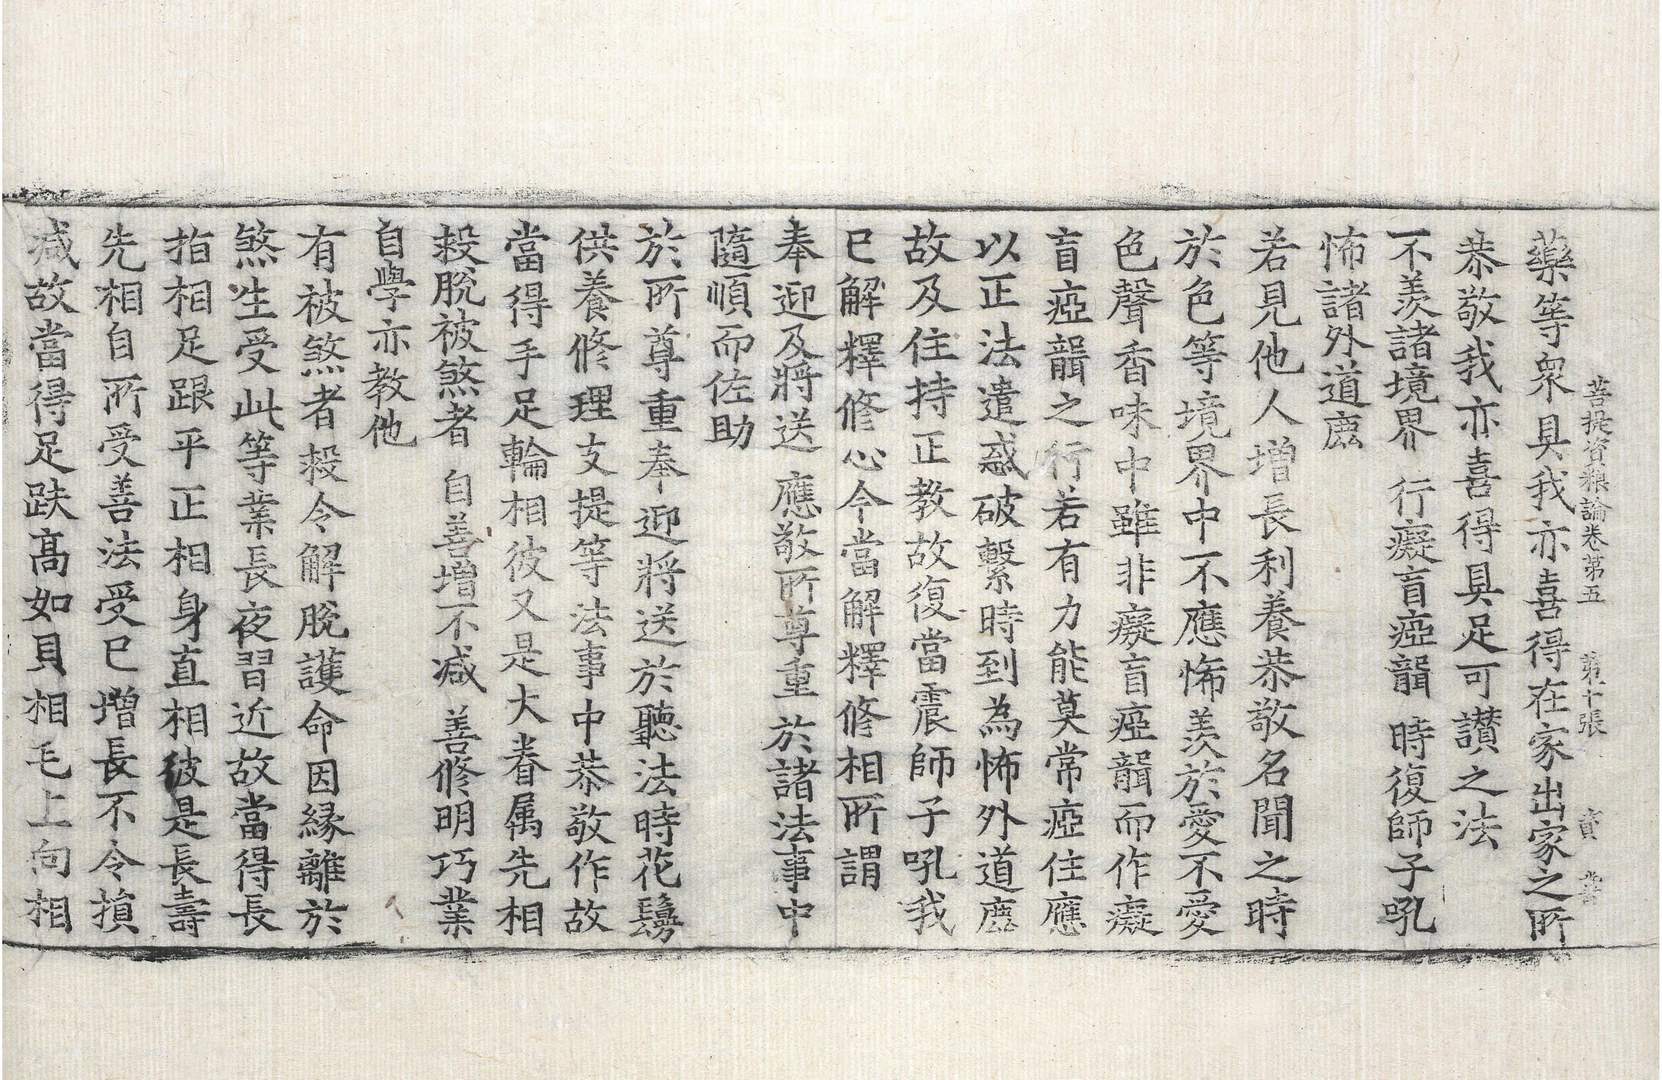 菩提資糧論卷第五 第十張
藥等衆具我亦喜得在家出家之所
恭敬我亦喜得具足可讃之法
不羨諸境界 行癡盲瘂聾 時復師子吼
怖諸外道鹿
若見他人增長利養恭敬名聞之時
於色等境界中不應怖羨於愛不愛
色聲香味中雖非癡盲瘂聾而作癡
盲瘂聾之行若有力能莫常瘂住應
以正法遣惑破繫時到為怖外道鹿
故及住持正教故復當震師子吼我
已解釋修心今當解釋修相所謂
奉迎及將送 應敬所尊重 於諸法事中
隨順而佐助
於所尊重奉迎將送於聽法時花鬘
供養修理支提等法事中恭敬作故
當得手足輪相彼又是大眷属先相
救脫被煞者 自善增不减 善修明巧業
自學亦教他
有被煞者救令解脫護命因緣離於
煞生受此等業長夜習近故當得長
指相足跟平正相身直相彼是長壽
先相自所受善法受已增長不令損
减故當得足趺高如貝相毛上向相